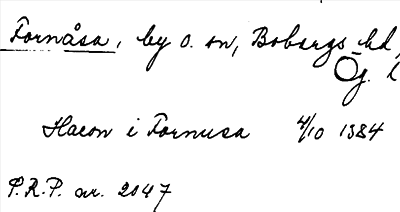 Fornåsa, by o. sn, Bobergs hd,
Ög. l
Hacon i Fornusa 4/10 1384
P.R.P. nr. 2047